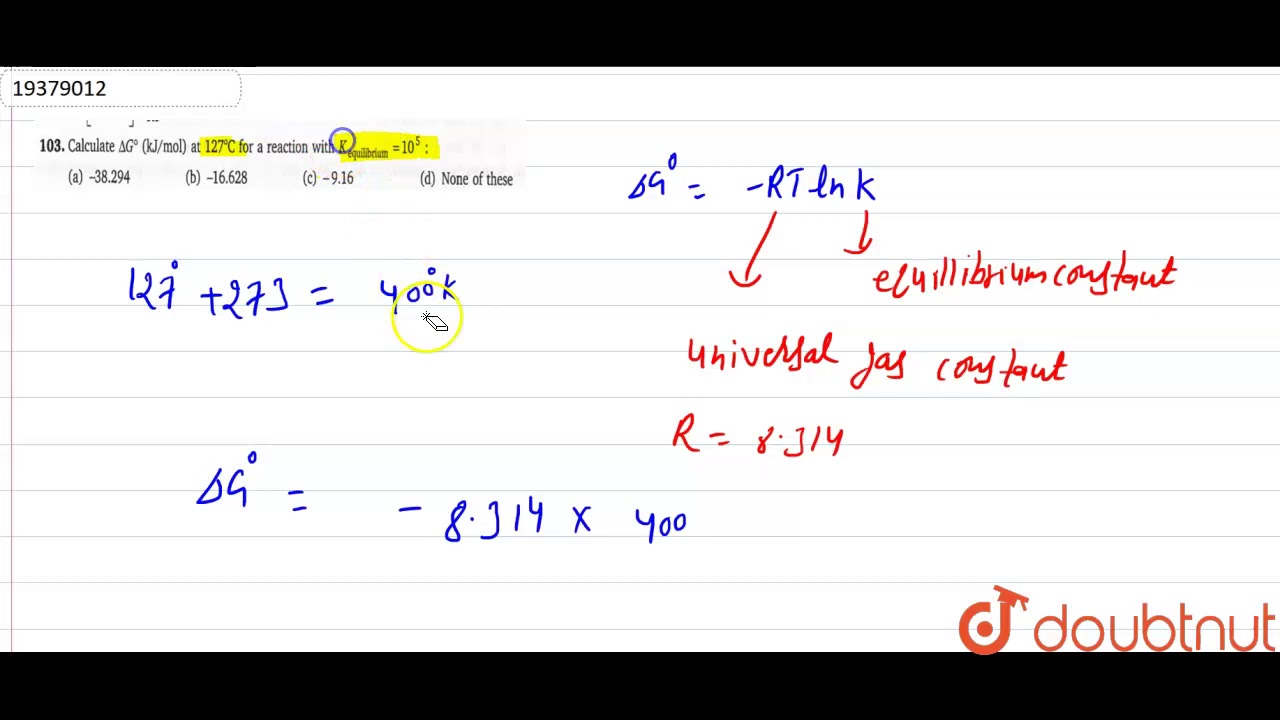 19379012
103. Calculate ΔG° (kJ/mol) at 127°C for a reaction with K equilibrium = 10⁵ :
(a) –38.294 (b) –16.628 (c) –9.16 (d) None of these
ΔG° = -RT ln K
equillibrium constant
127° + 273 = 400°K
universal gas constant
R = 8.314
ΔG° = - 8.314 x 400
doubtnut